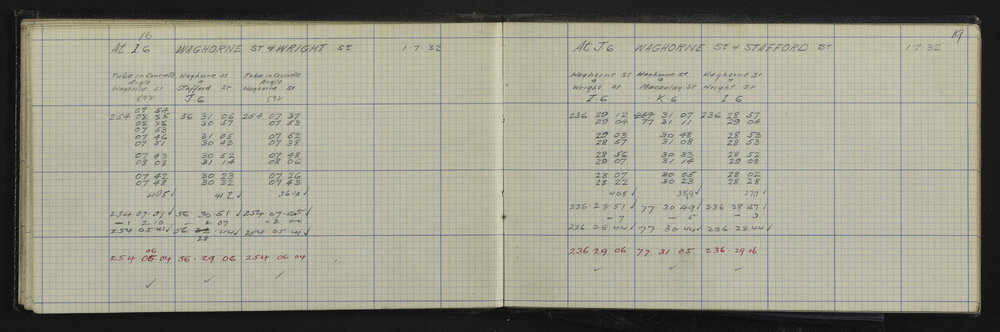 16
At I 6 WAGHORNE ST & WRIGHT ST 1·7·32
Tube in Concrete Waghorne St Tube in Concrete
Angle & Angle
Waghorne St Stafford St Waghorne St
592 J 6 592
07 54
254 08 56 31 06 254 07 37
30 57 07 53
07 58
07 46 31 05 07 52
07 51 30 48 07 38
07 43 30 52 07 48
08 08 31 14 08 06
07 42 30 23 07 26
07 48 30 32 07 43
405 412
254·07·51 56·30·51 254 07·45
-1 2 10 -2 07 -2 04
254 05 41 56 28 44 254 05 41
06
254 05 04 56·29·06 254·06·04
19
At J 6 WAGHORNE ST & STAFFORD ST 1·7·32
Waghorne St Waghorne St Waghorne St
& & &
Wright St Macaulay St Wright St
I 6 K 6 I 6
236 29 12 254 31 07 236 28 57
29 04 77 31 11 29 04
29 03 30 48 28 53
28 57 31 08 28 53
28 56 30 33 28 52
29 07 31 14 29 08
28 07 30 05 28 02
28 22 30 23 28 28
408 389 277
236 28 51 77·30·49 236·28·47
-7 -5 -3
236 28 44 77 30 44 236 28 44
236·29·06 77 31 05 236·29 06